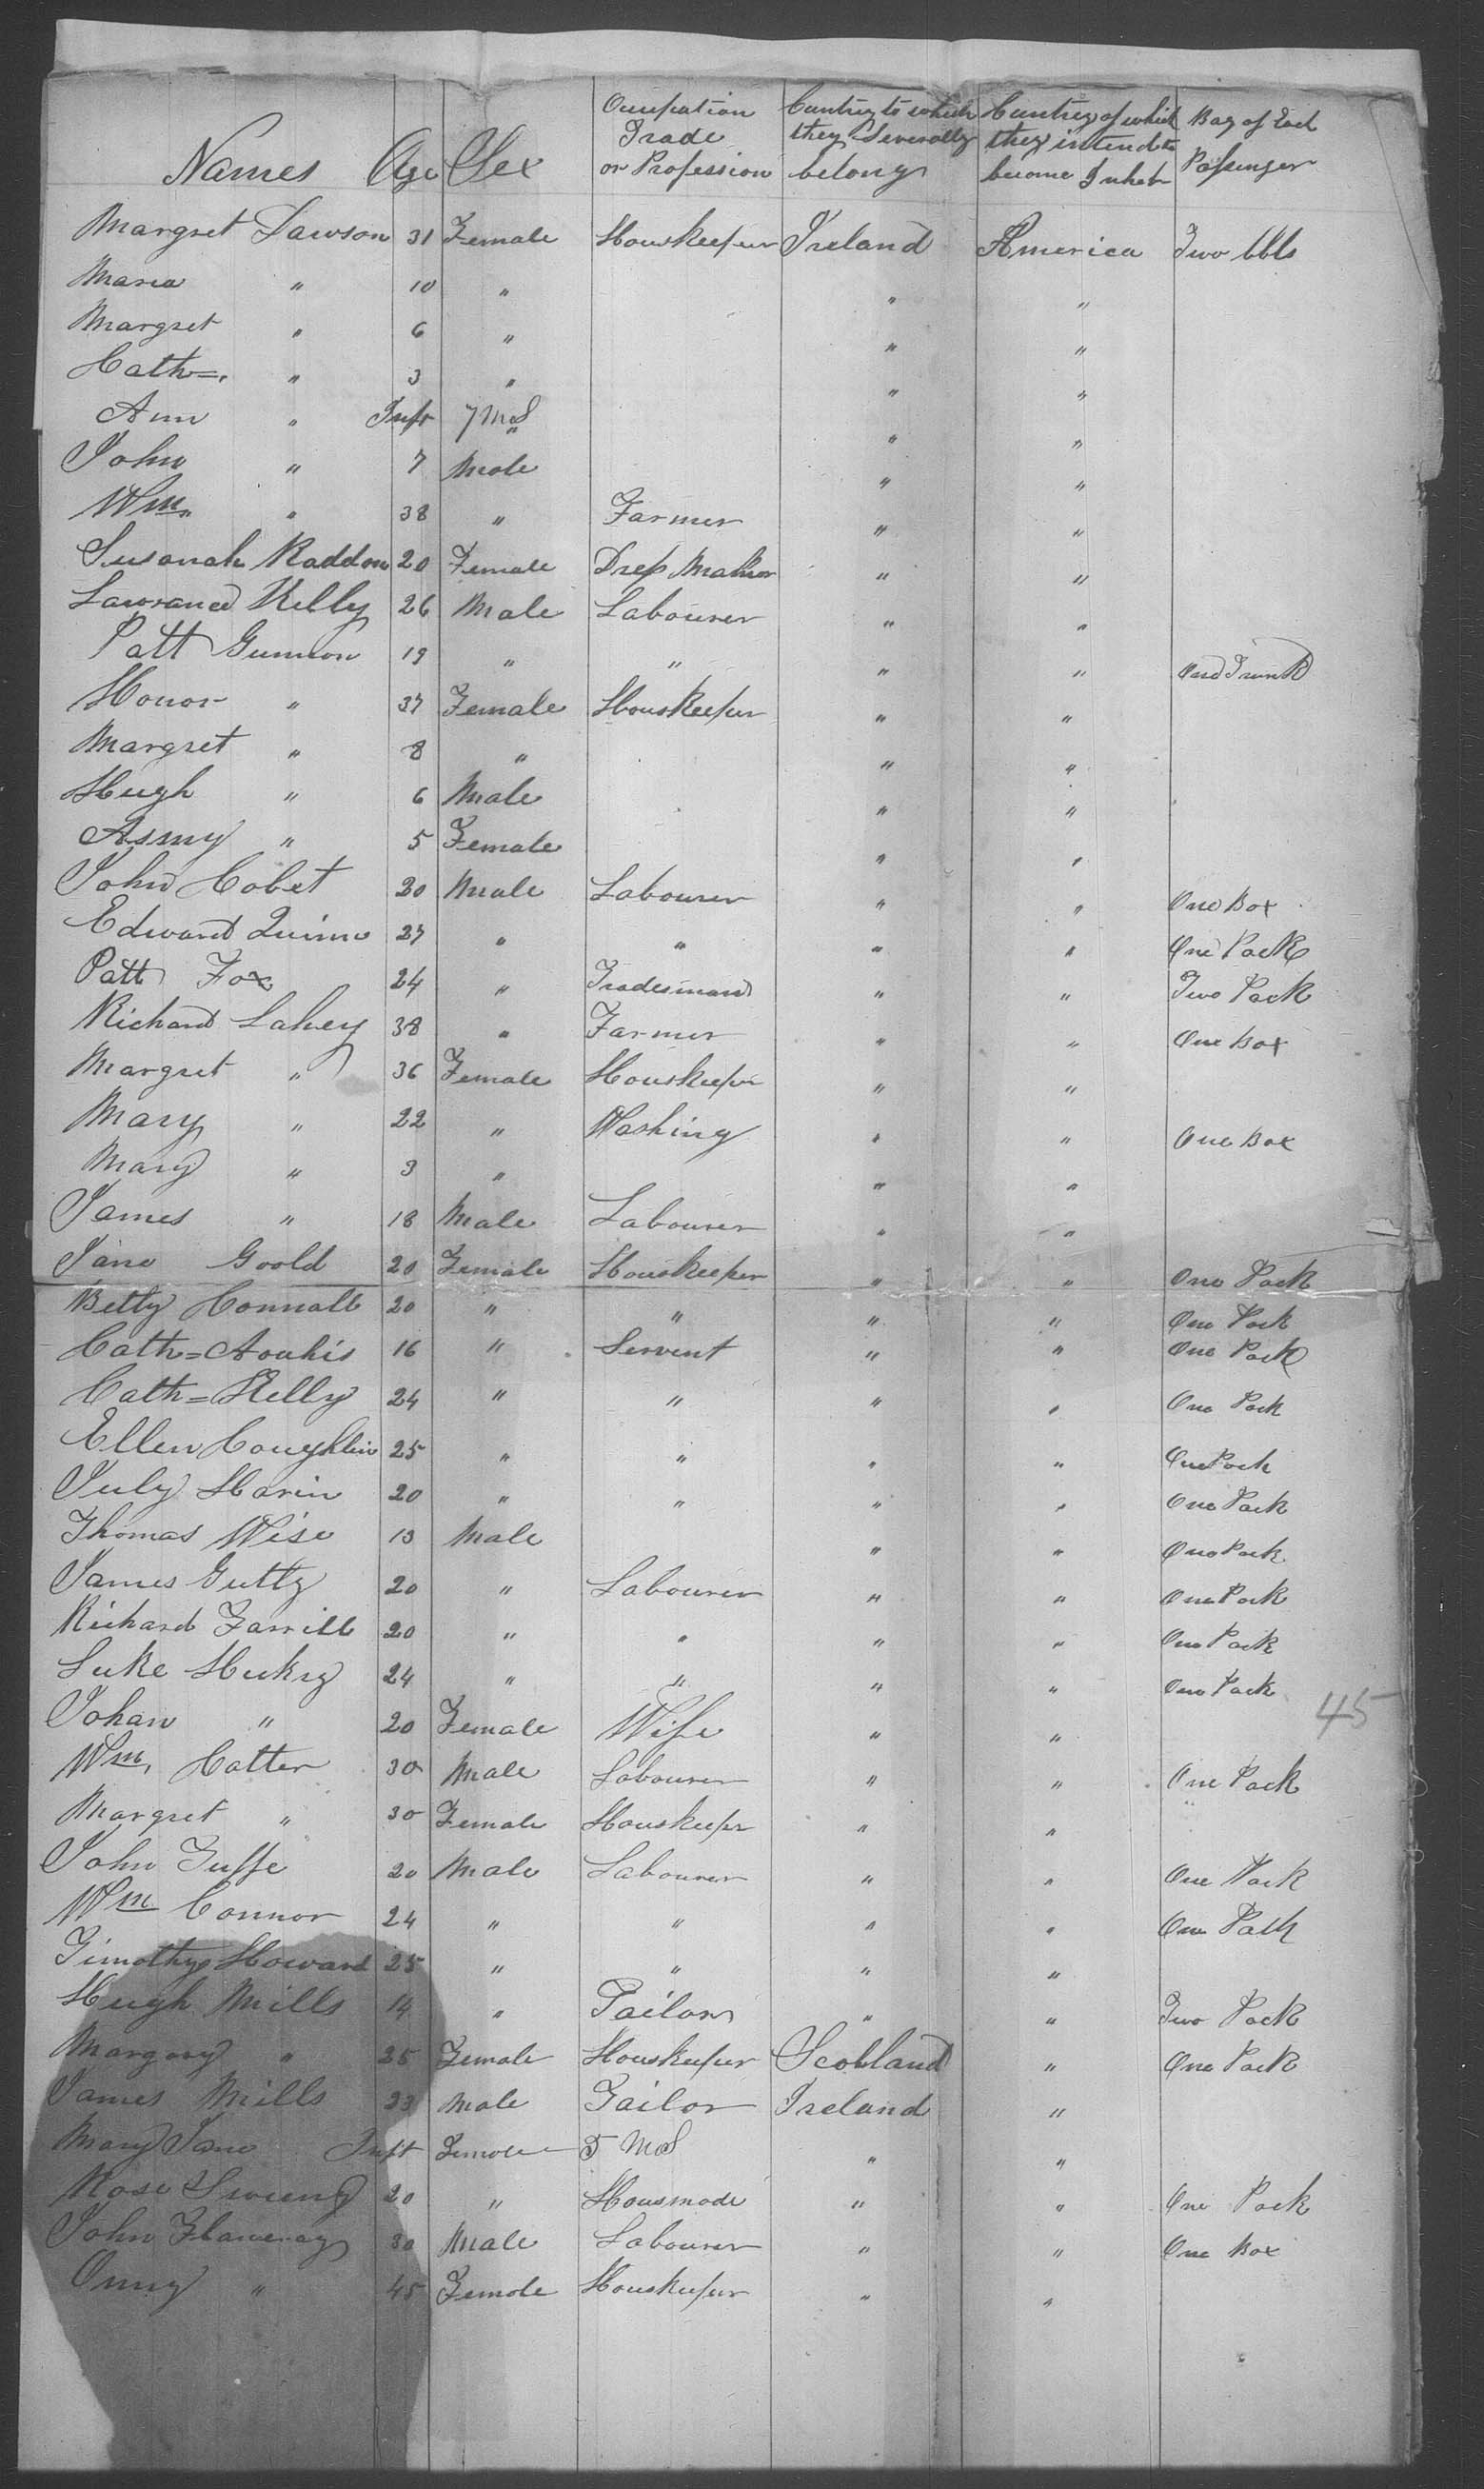 Names Age Sex Occupation Trade or Profession Cuntry to which they Severally belong Cuntrey of which they intend to become Inhab Bag of Each Passenger
Margret Lawson 31 Female Houskeeper Ireland America Two bbls
Maria " 10 " " "
Margret " 6 " " "
Cath=. " 3 " " "
Ann " Inft 7 Mos " " "
John " 7 Male " "
Wm. " 38 " Farmer " "
Susanah Raddon 20 Female Dress Maker " "
Lawrance Kelly 26 Male Labourer " "
Patt Gunnon 19 " " " " One Trunk
Honor " 37 Female Houskeeper " "
Margret " 8 " " "
Hugh " 6 Male " "
" 5 Female " "
John Cobet 20 Male Labourer " " One Box
Edward Quinn 27 " " " " One Pack
Patt Fox 24 " Tradesman " " Two Pack
Richard Lahey 38 " Farmer " " One Box
Margret " 36 Female Houskeeper " "
Mary " 22 " Washing " " One Box
Mary " 3 " " "
James " 18 Male Labourer " "
Jane Goold 20 Female Houskeeper " " One Pack
Betty Connall 20 " " " " One Pack
Cath= 16 " Servent " " One Pack
Cath= Kelly 24 " " " " One Pack
Ellen Coughlin 25 " " " " One Pack
July Harin 20 " " " " One Pack
Thomas Wise 13 Male " " One Pack
James Gutty 20 " Labourer " " One Pack
Richard Farrill 20 " " " " One Pack
Luke Hukey 24 " " " " One Pack
45
Johan " 20 Female Wife " "
Wm. Cotter 30 Male Labourer " " One Pack
Margret " 30 Female Houskeepr " "
John Fuffe 20 Male Labourer " " One Pack
Wm Connor 24 " " " " One Pack
Timothy Howard 25 " " " "
Hugh Mills 14 " Tailor " " Two Pack
Margary " 25 Female Houskeeper Scotland " One Pack
James Mills 23 Male Tailor Ireland "
Mary Jane Inft Female 5 Mos " "
Rose Sweeny 20 " Housmade " " One Pack
John 30 Male Labourer " " One Box
" 45 Female Houskeeper " "